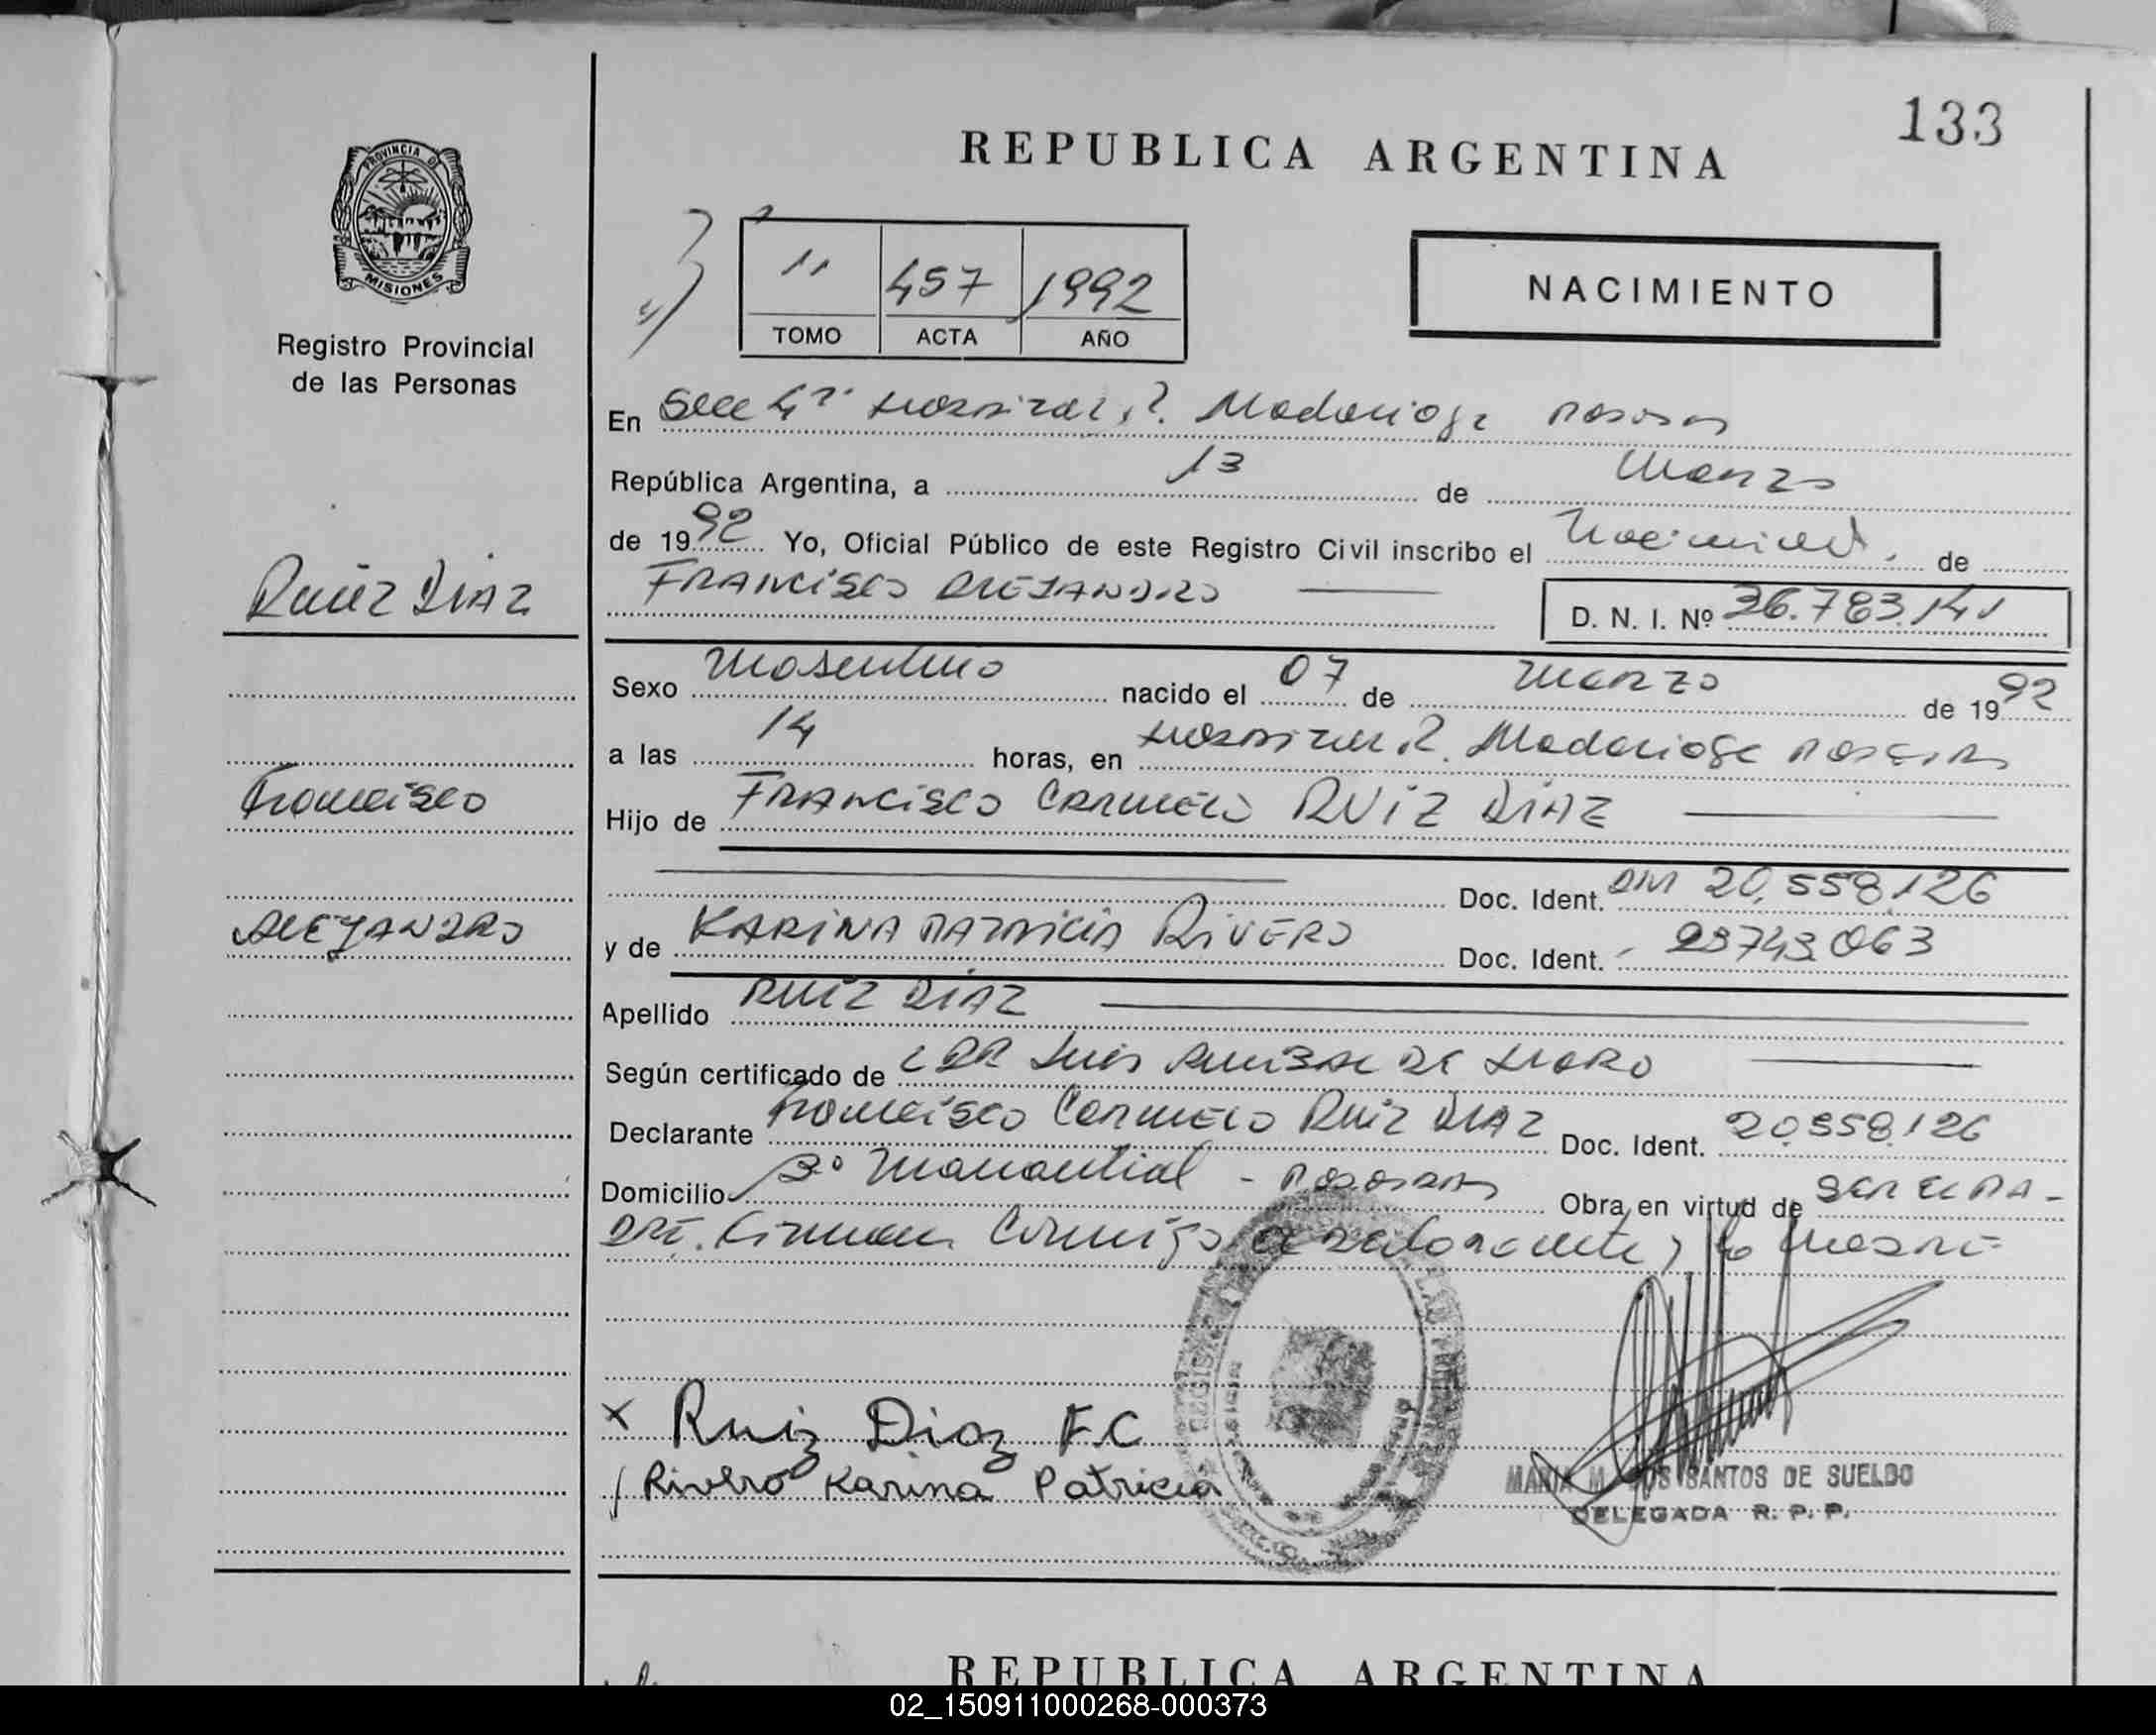 133
REPUBLICA ARGENTINA
PROVINCIA DE
MISIONES
Registro Provincial
de las Personas
11 457 1992
TOMO ACTA AÑO
NACIMIENTO
En Secc 4ta Hospital R. Madariaga Posadas
República Argentina, a 13 de Marzo
de 1992 Yo, Oficial Público de este Registro Civil inscribo el Nacimiento de
FRANCISCO ALEJANDRO
D. N. I. Nº 36.783.141
RUIZ DIAZ
Francisco
ALEJANDRO
Sexo Masculino nacido el 07 de Marzo de 1992
a las 14 horas, en Hospital R. Madariaga Posadas
Hijo de FRANCISCO CARMELO RUIZ DIAZ
Doc. Ident. DNI 20.558.126
y de KARINA PATRICIA RIVERO Doc. Ident. 23743.063
Apellido RUIZ DIAZ
Según certificado de DR Luis DE HARO
Declarante Francisco Carmelo Ruiz DIAZ Doc. Ident. 20.558.126
Domicilio Bº Manantial - Posadas Obra en virtud de SER EL PA-
DRE. Firman Conmigo el declarante y la Madre
x Ruiz Diaz F.C
Rivero Karina Patricia
MARIA M. DOS SANTOS DE SUELDO
DELEGADA R. P. P.
REPUBLICA ARGENTINA
02_150911000268-000373